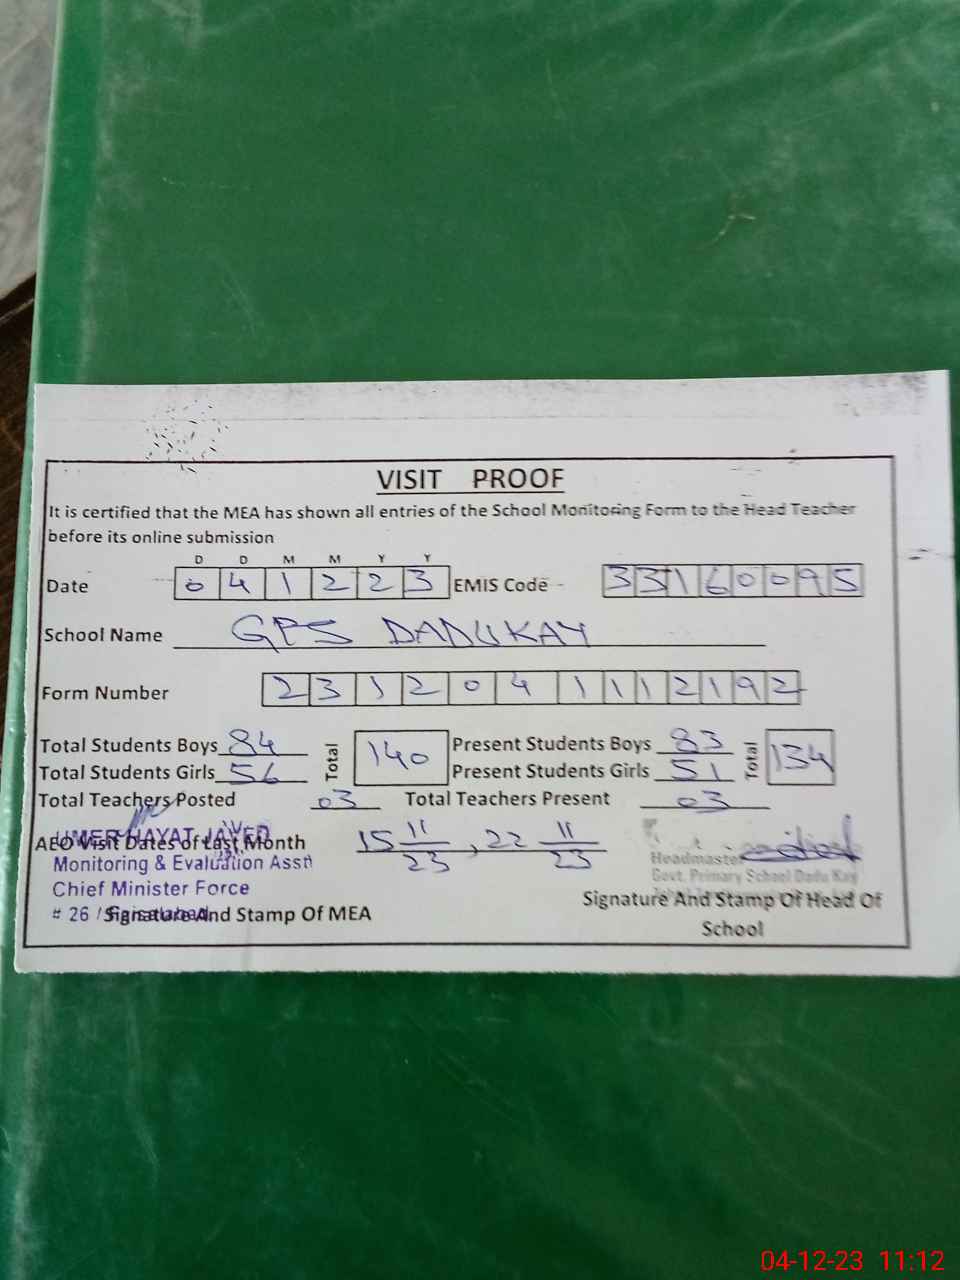 VISIT PROOF
It is certified that the MEA has shown all entries of the School Monitoring Form to the Head Teacher
before its online submission
D D M M Y Y
Date 0 4 1 2 2 3 EMIS Code - 3 3 1 6 0 0 9 5
School Name GPS DADUKAY
Form Number 2 3 1 2 0 4 1 1 1 2 1 9 2
Total Students Boys 84 Total 140 Present Students Boys 83 Total 134
Total Students Girls 56 Present Students Girls 51
Total Teachers Posted 03 Total Teachers Present 03
AEO Visit Dates of Last Month 15 11/23, 22 11/23
UMER HAYAT JAVED
Monitoring & Evaluation Asstt
Chief Minister Force
# 26 / Faisalabad
Signature And Stamp Of MEA
Headmaster
Govt. Primary School Dadu Kay
Signature And Stamp Of Head Of
School
04-12-23 11:12